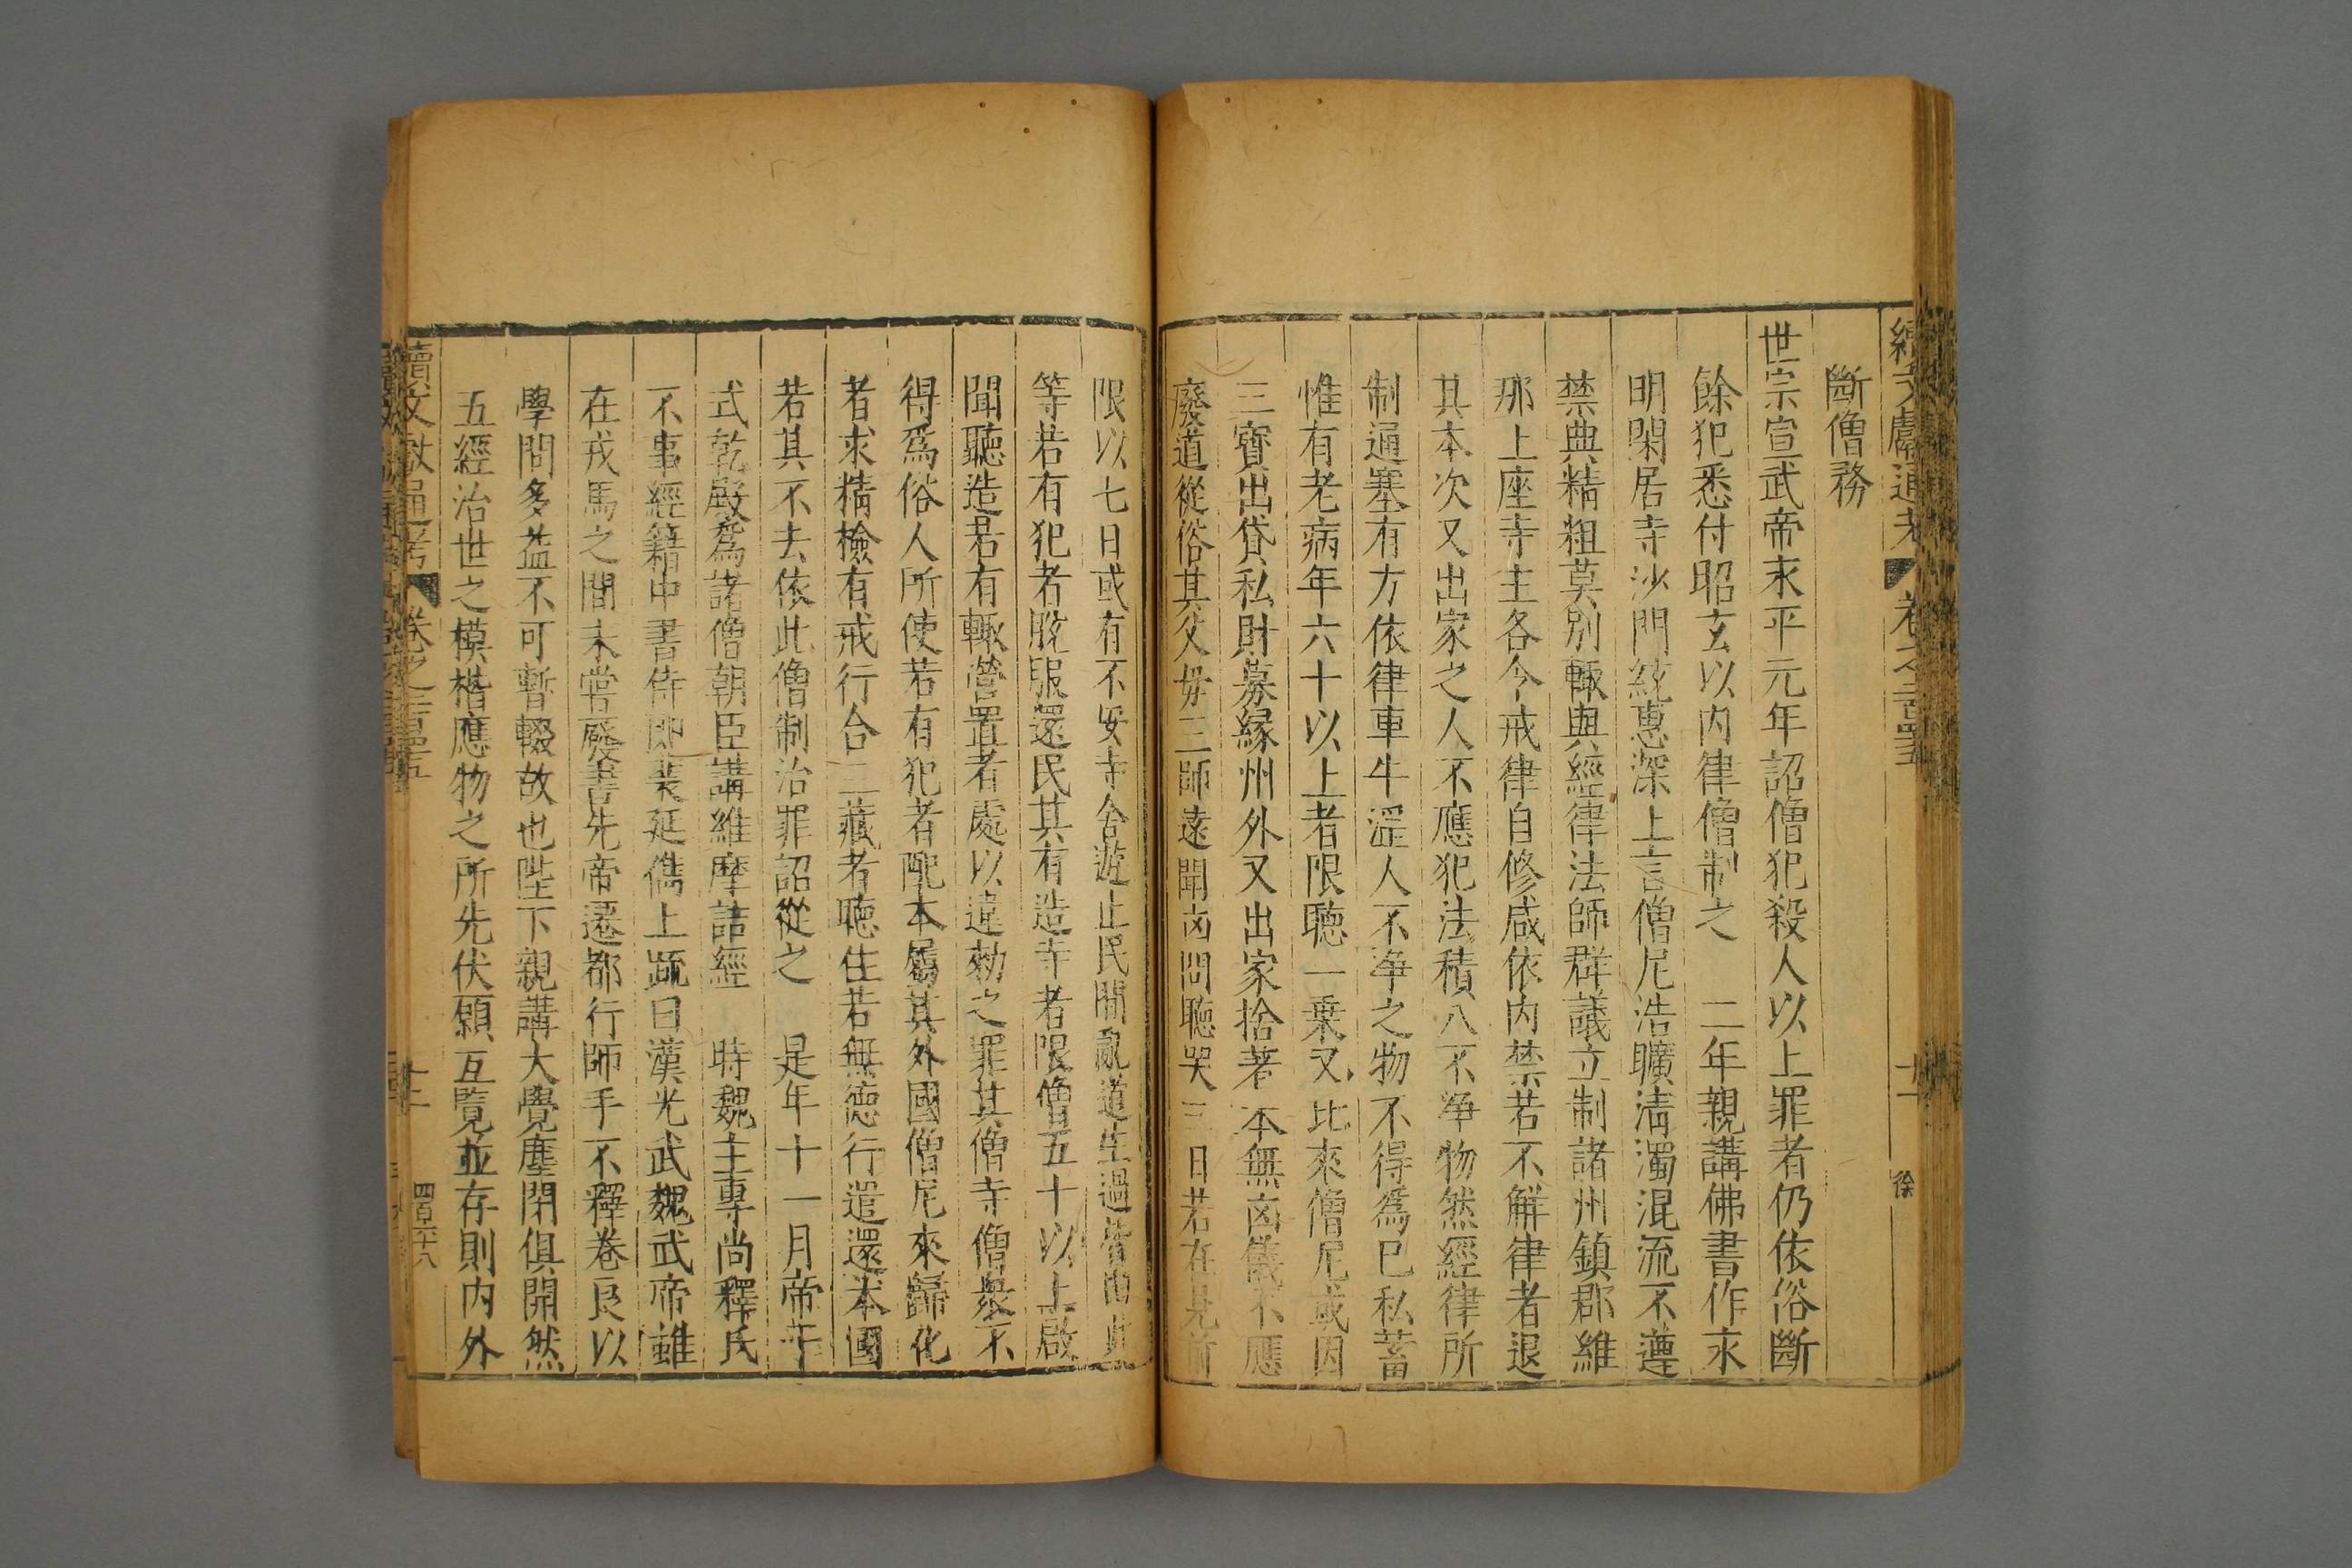 續文獻通考
卷之二百四五
十一
徐
斷僧務
世宗宣武帝永平元年詔僧犯殺人以上罪者仍依俗斷
餘犯悉付昭玄以内律僧制之 二年親講佛書作永
明閑居寺沙門統惠深上言僧尼浩曠清濁混流不遵
禁典精粗莫別輒與經律法師群議立制諸州鎮郡維
那上座寺主各令戒律自修咸依内禁若不解律者退
其本次又出家之人不應犯法積八不浄物然經律所
制通塞有方依律車牛淫人不浄之物不得爲已私蓄
惟有老病年六十以上者限聽一乗又比來僧尼或因
三寳出貸私財募緣州外又出家捨著本無凶儀不應
廢道從俗其父母三師遠聞凶問聽哭三日若在見前
限以七日或有不安寺舍遊止民間亂道生過皆由此
等若有犯者脫服還民其有造寺者限僧五十以上啟
聞聽造若有輒營置者處以違勅之罪其僧寺僧衆不
得爲俗人所使若有犯者配本屬其外國僧尼來歸化
者求精檢有戒行合三藏者聽住若無德行遣還本國
若其不去依此僧制治罪詔從之 是年十一月帝于
式乾殿爲諸僧朝臣講維摩詰經 時魏主專尚釋氏
不事經籍中書侍郎裴延儁上䟽曰漢光武魏武帝雖
在戎馬之間未嘗廢書先帝遷都行師手不釋卷良以
學問多益不可暫輟故也陛下親講大覺塵閉俱開然
五經治世之模楷應物之所先伏願互覽並存則内外
續文獻通考
卷之二百四五
十二
四百六八